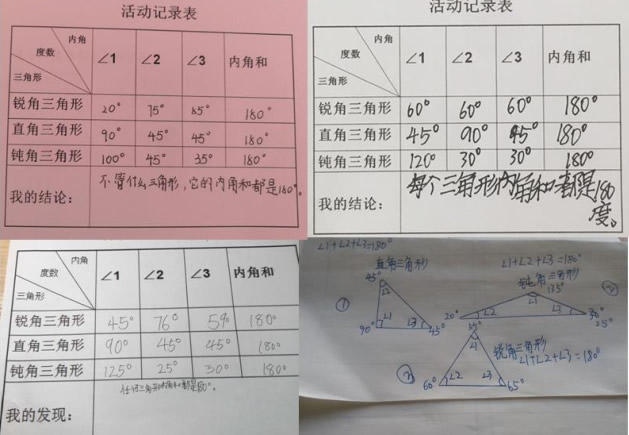 活动记录表
内角
度数
三角形
∠1 ∠2 ∠3 内角和
锐角三角形 20° 75° 85° 180°
直角三角形 90° 45° 45° 180°
钝角三角形 100° 45° 35° 180°
我的结论: 不管什么三角形,它的内角和都是180°。
活动记录表
内角
度数
三角形
∠1 ∠2 ∠3 内角和
锐角三角形 60° 60° 60° 180°
直角三角形 45° 90° 45° 180°
钝角三角形 120° 30° 30° 180°
我的结论: 每个三角形内角和都是180
度。
内角
度数
三角形
∠1 ∠2 ∠3 内角和
锐角三角形 45° 76° 59° 180°
直角三角形 90° 45° 45° 180°
钝角三角形 125° 25° 30° 180°
任何三角形内角和都是180°。
我的发现:
∠1+∠2+∠3=180°
直角三角形
45°
①
∠2
∠1 ∠3
90° 45°
∠1+∠2+∠3=180°
钝角三角形
135°
∠1
20° ∠2 ∠3
25°
55°
∠1
锐角三角形
∠1+∠2+∠3=180°
60° ∠2 ∠3 65°